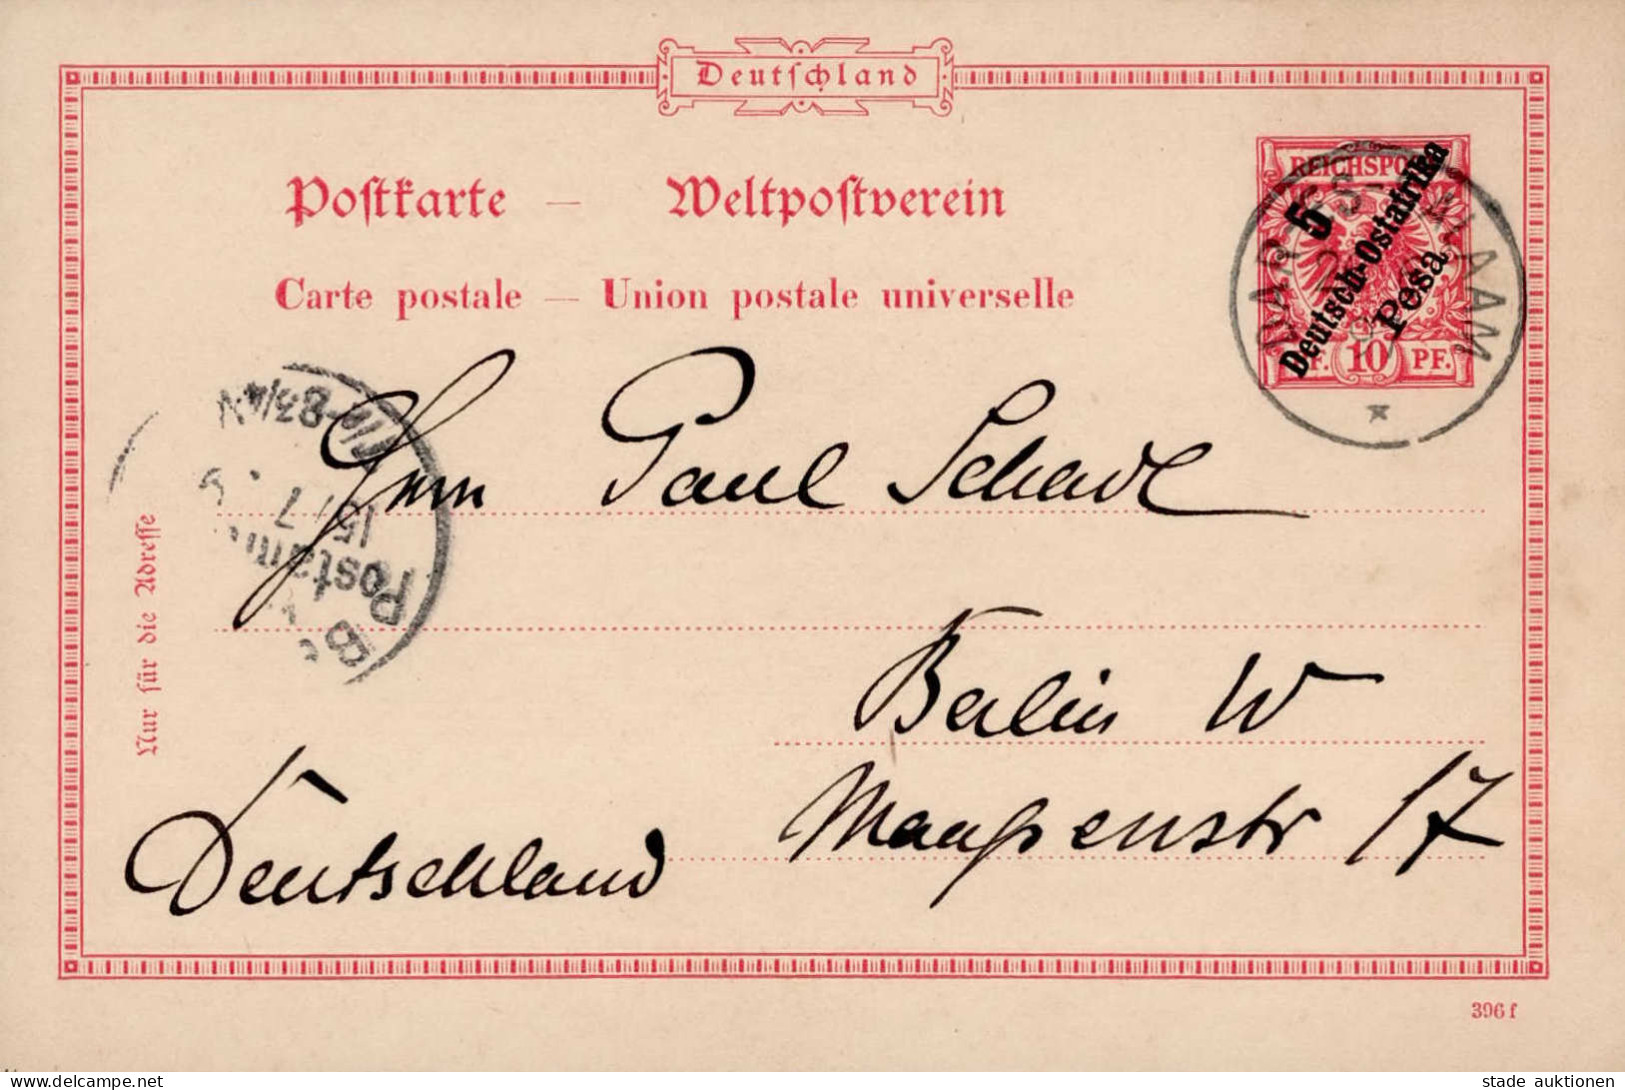 Deutſchland
Poſtkarte — Weltpoſtverein
Carte postale — Union postale universelle
REICHSPOST
5
Deutsch-Ostafrika
Pesa
10 PF.
DAR-ES-SALAAM
Herrn Paul
Berlin W
17
Deutschland
Nur für die Adreſſe
Postamt
15/7
8¾N
396 f
stade auktionen